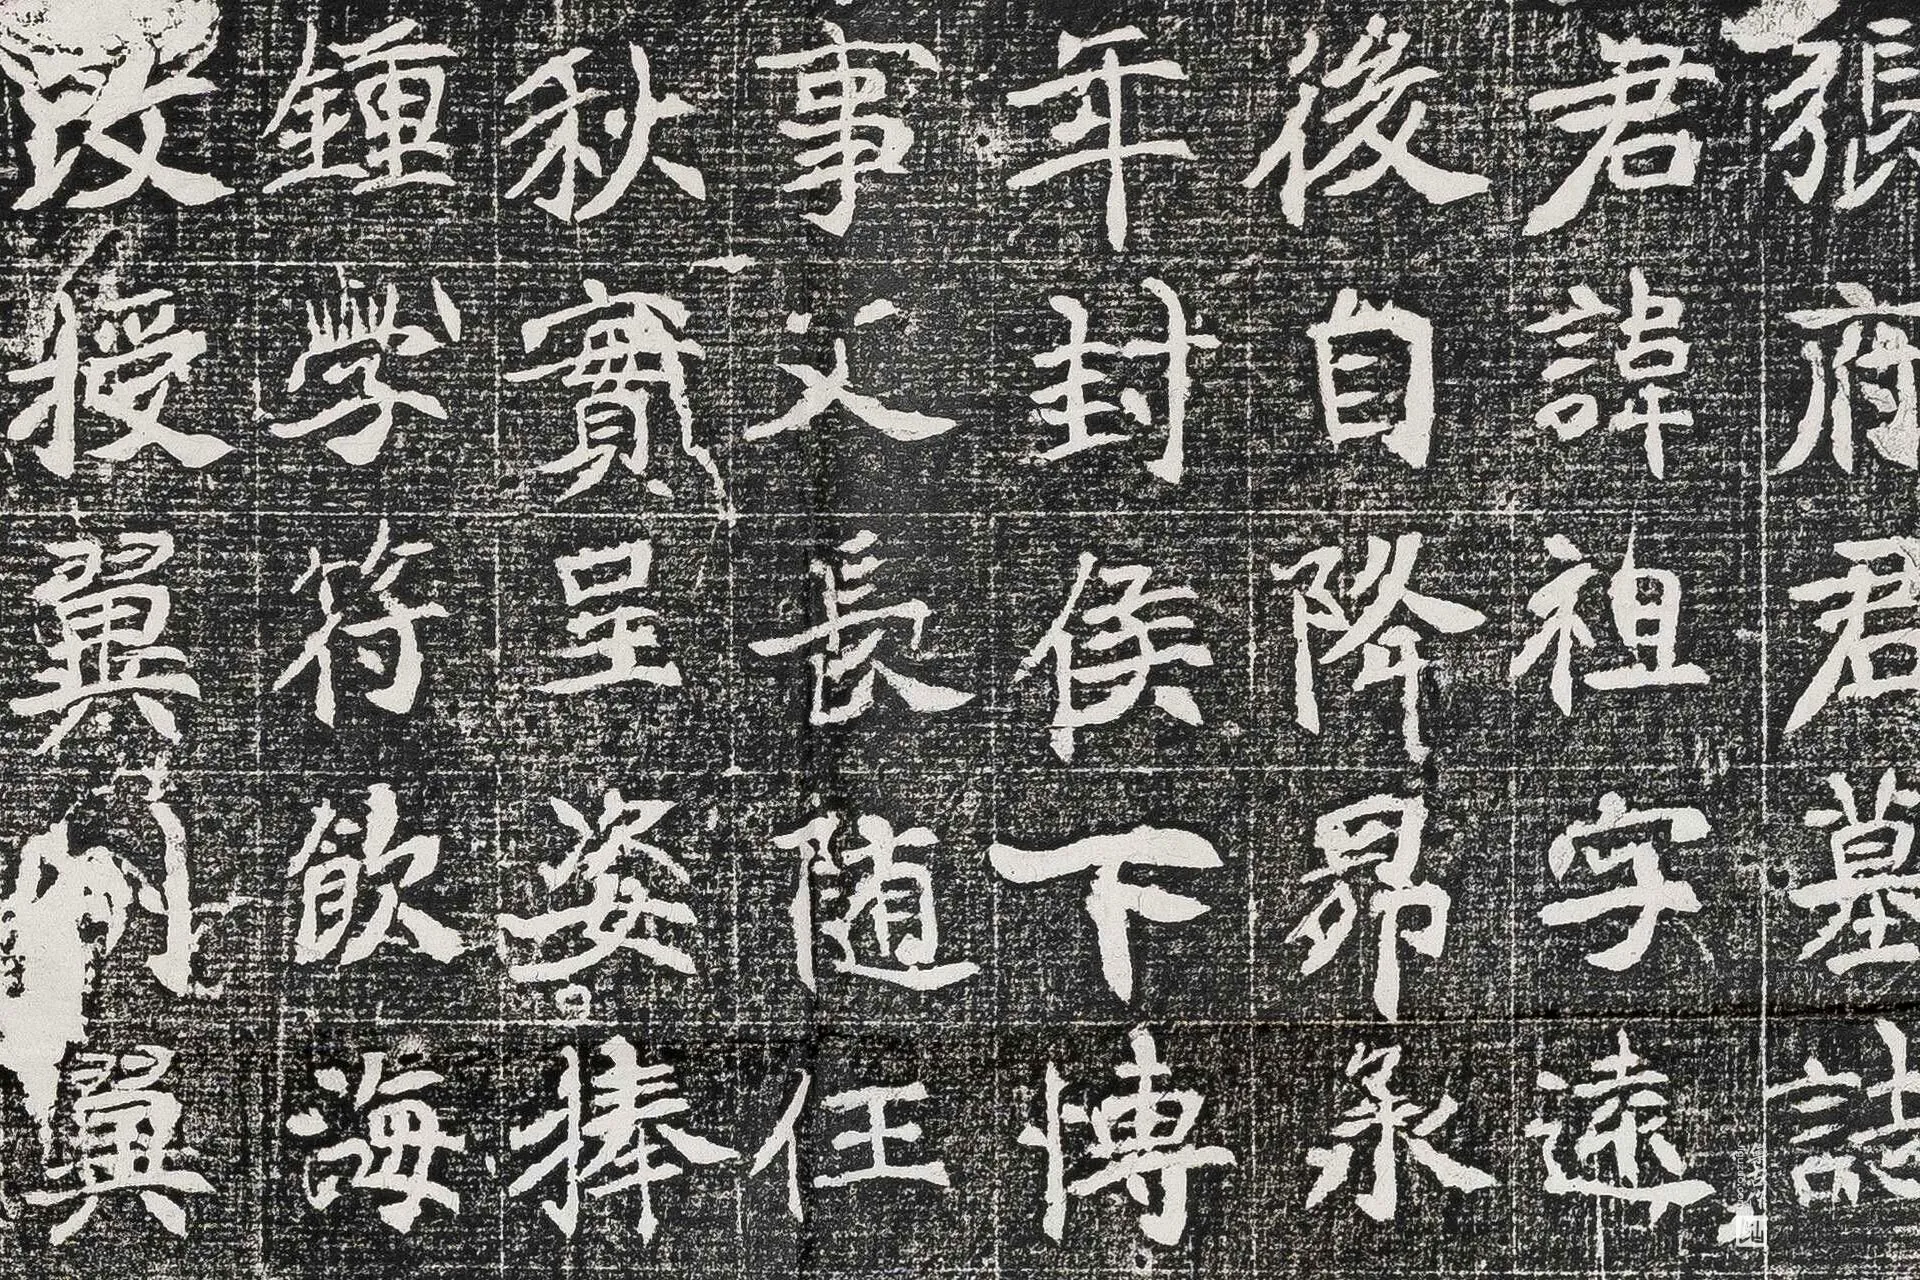 張府君墓誌
君諱祖字遠
後自降昴承
年封侯下愽
事父長随任
秋實呈姿捧
鍾學符飲海
改授翼州翼